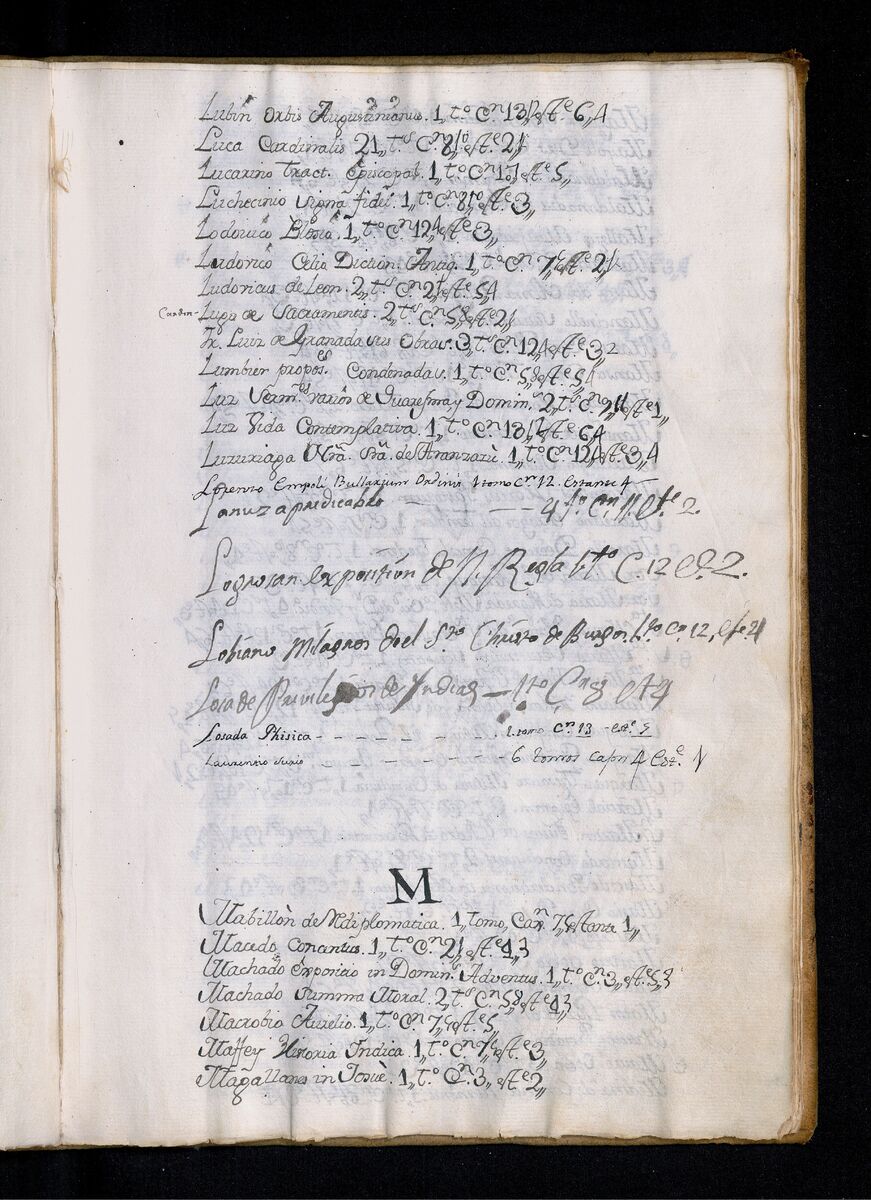 Lubin Orbis Augustinianus. 1,, t.º C.n 13,, estt.e 6,,4
Luca Cardinalis 21,, t.s C.n 8,, estt.e 2,,
Lucarino Tract. Episcopal. 1,, t.º C.n 17,, estt.e 5,,
Luchecinio signa fidei. 1,, t.º C.n 8,, estt.e 3,,
Lodovico Blosio. 1,, t.º C.n 12,, estt.e 3,,
Ludovico Celio Diction. Antiq. 1,, t.º C.n 7,, estt.e 2,,
Ludovicus de Leon. 2,, t.s C.n 2,, estt.e 5,,4
Carden. Lugo de Sacramentis. 2,, t.s C.n 5,, estt.e 2,,
Fr. Luiz de Granada sus Obras. 3,, t.s C.n 12,, estt.e 3,,2
Lumbier propos.es Condenadas. 1,, t.º C.n 5,, estt.e 5,,
Luz Serm.es varios de Quaresma y Domin.s 2,, t.s C.n 9,, estt.e 1,,
Luz Vida Contemplativa. 1,, t.º C.n 13,, estt.e 6,,4
Luzuriaga Nra. Sra. de Aranzazù. 1,, t.º C.n 12,, estt.e 3,,4
Lorenzo Empoli Bullarium Ordinis 1 tomo C.n 12. estante 4
Lanuza predicable — — 4 t.º C.n 11. est.e 2.
Logrosan exposition de N. Regla 1. tº C. 12 e. 2.
Lobiano Milagros del Sto. Christo de Burgos. 1. to C.n 12, este. 4
Losa de Privilegios de Indias — 1 to C.n 8 est 4
Losada Phisica - - - - - - - 1. tomo C.n 13 - est.e 5
Laurentio Surio - - - - - - - 6 tomos Cajon 4 Est.e 1
M
Mabillòn de Re diplomatica. 1,, tomo, Caxn. 7,, estante 1,,
Macedo Concentus. 1,, t.º C.n 2,, estt.e 4,,3
Machado Expositio in Domin.s Adventus. 1,, t.º C.n 3,, estt.e 5,,3
Machado Summa Moral. 2,, t.s C.n 5,, estt.e 4,,3
Macrobio Aurelio. 1,, t.º C.n 7,, estt.e 5,,
Maffey Historia Indica. 1,, t.º C.n 7,, estt.e 3,,
Magallanes in Josuè. 1,, t.º C.n 3,, estt.e 2,,